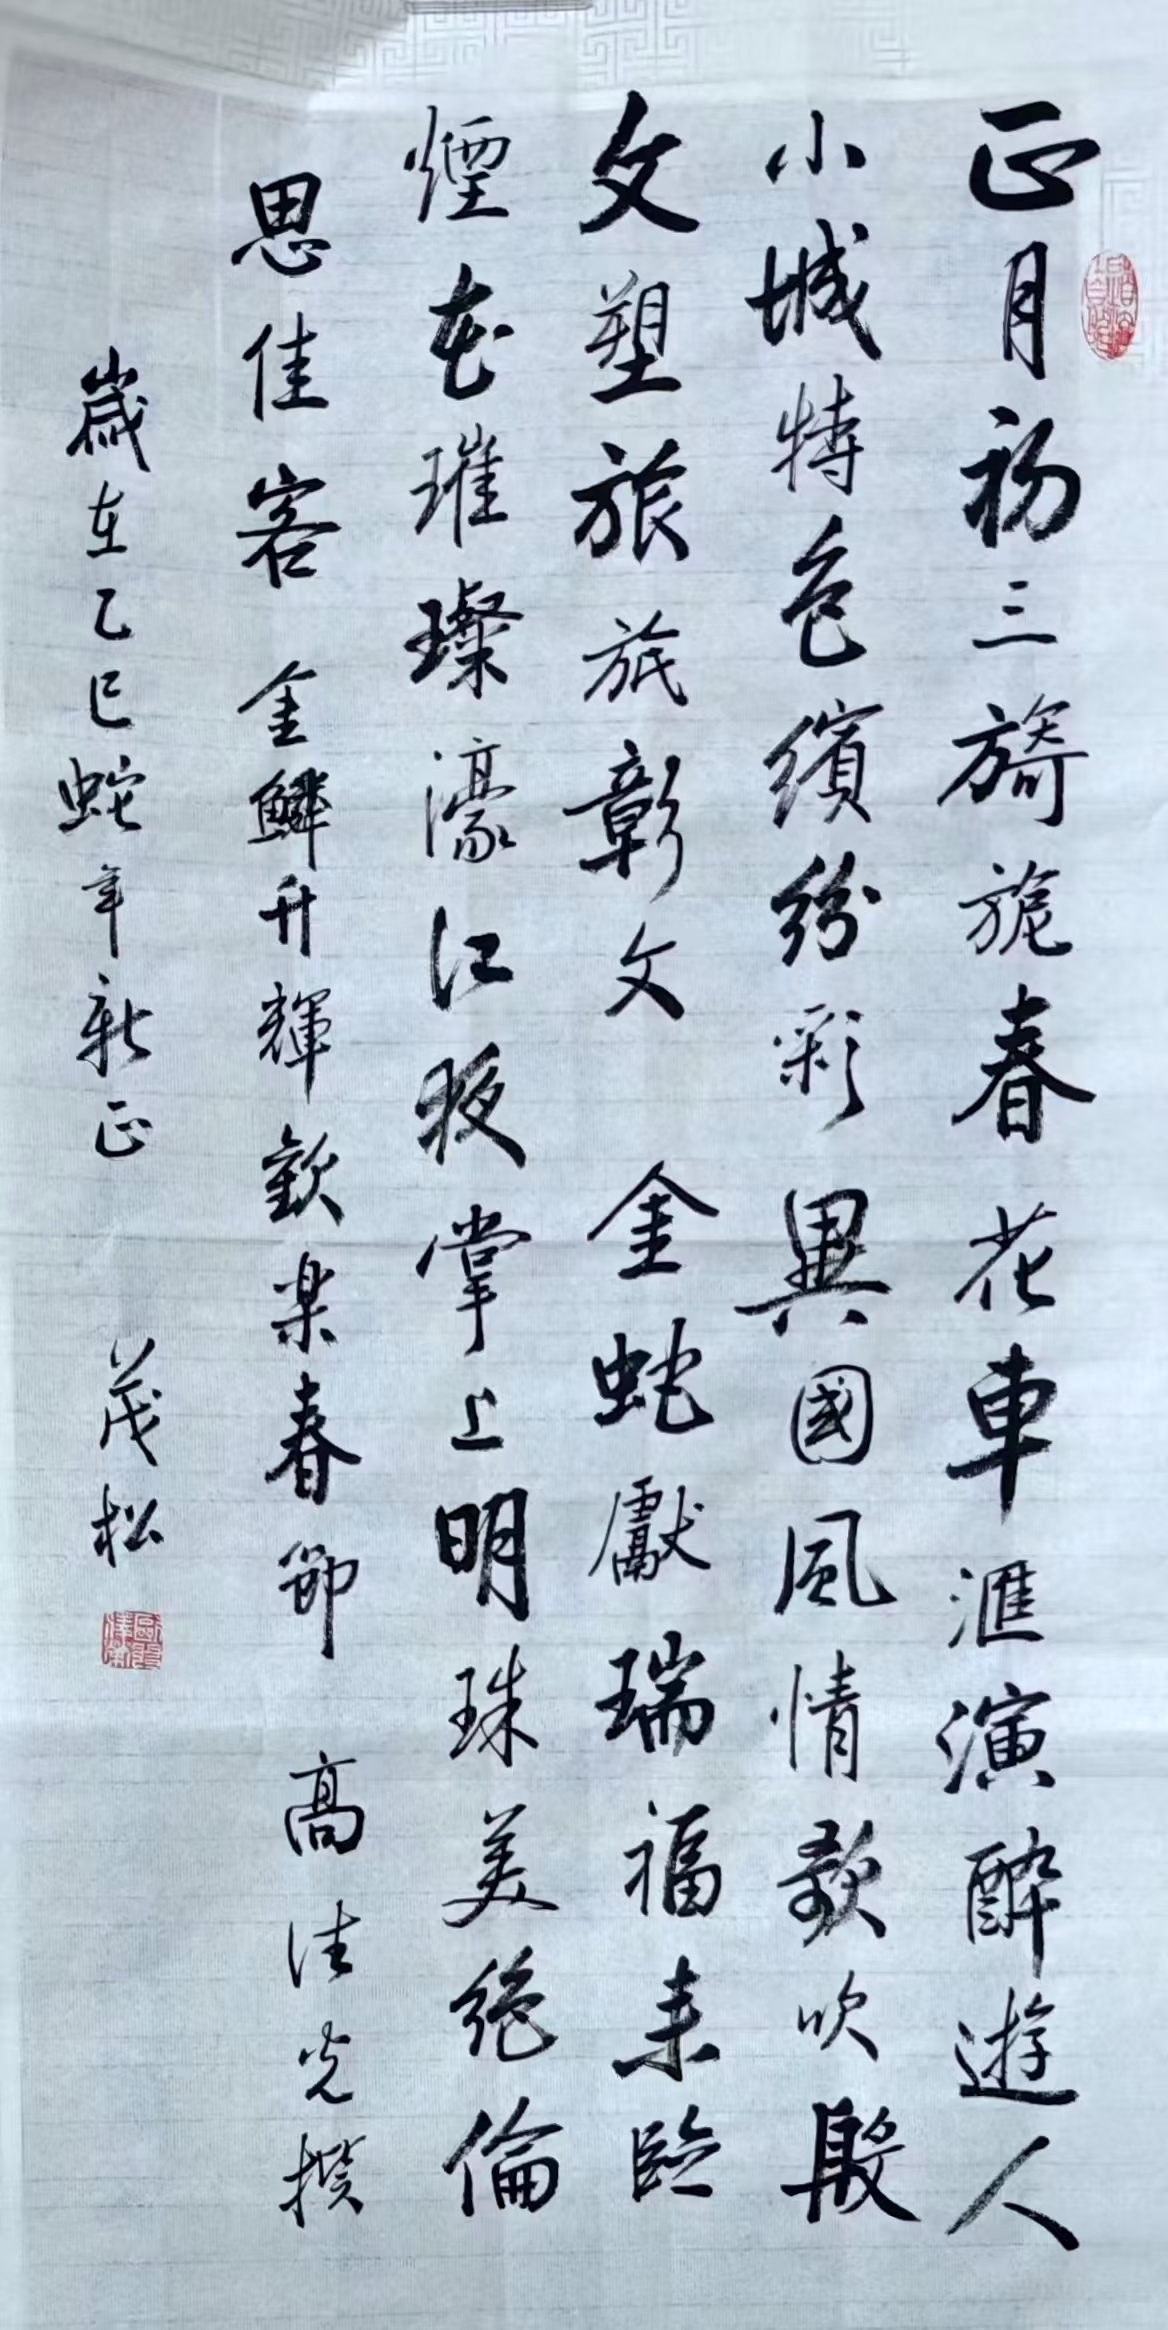 正月初三旖旎春花車滙演醉遊人
小城特色繽紛彩異國風情歌吹殷
文塑旅旅彰文金蛇獻瑞福來臨
煙花璀璨濠江夜掌上明珠美絕倫
思佳客金鱗升輝歡樂春節高佳光撰
歲在乙巳蛇年新正茂松